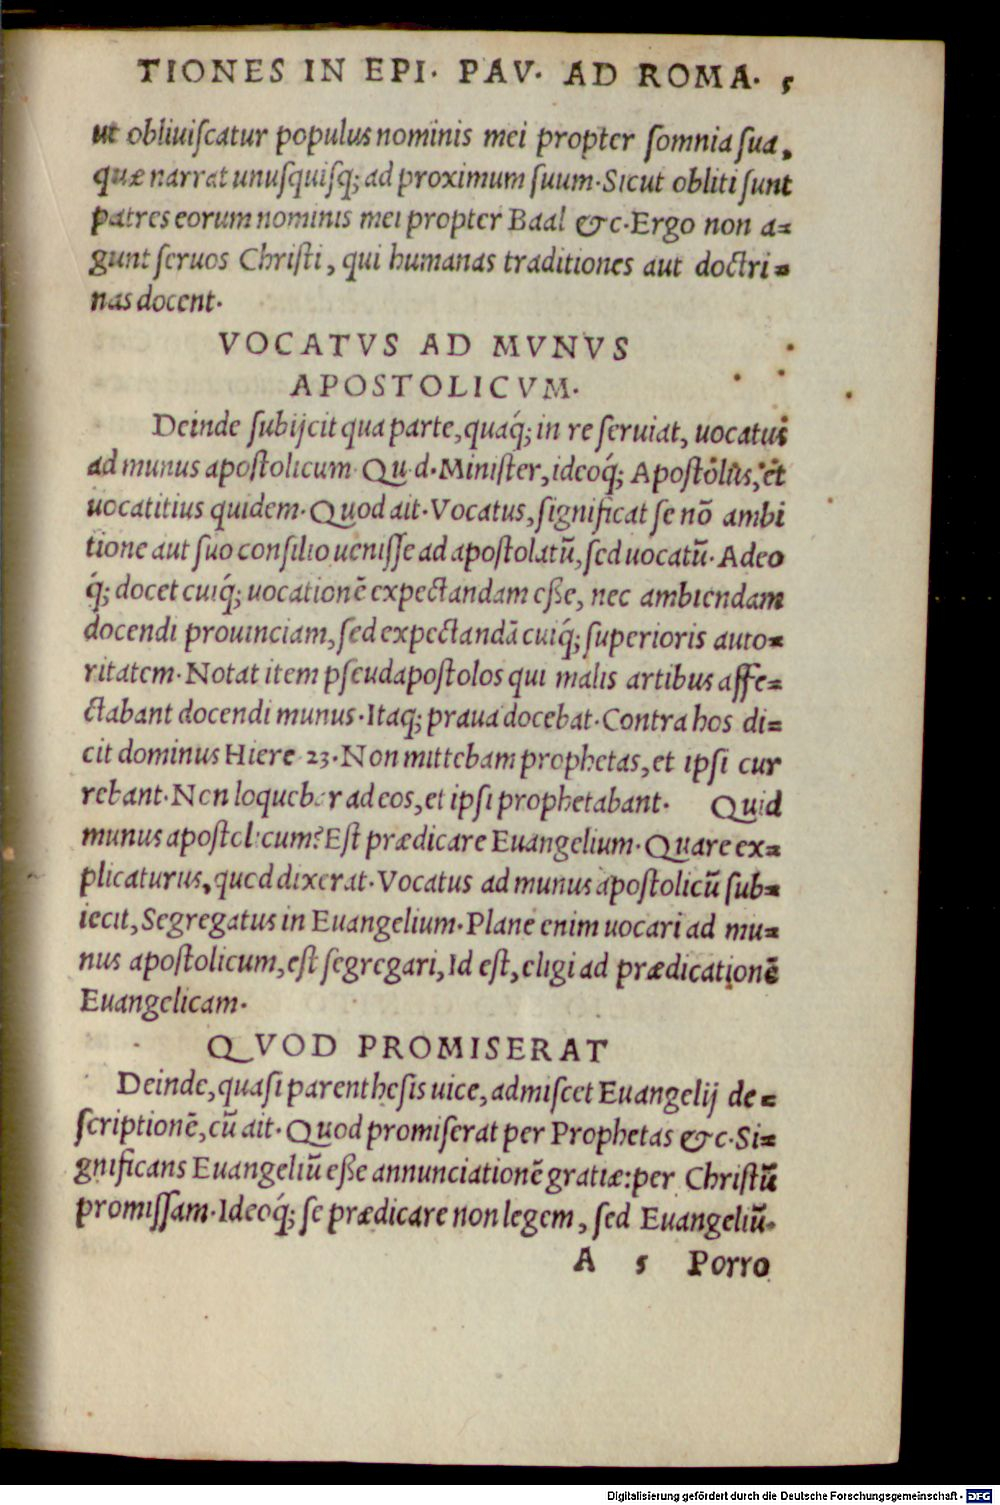 TIONES IN EPI· PAV· AD ROMA· 5
ut obliuiſcatur populus nominis mei propter ſomnia ſua,
quæ narrat unuſquiſq; ad proximum ſuum·Sicut obliti ſunt
patres eorum nominis mei propter Baal &c·Ergo non a=
gunt ſeruos Chriſti, qui humanas traditiones aut doctri=
nas docent·
VOCATVS AD MVNVS
APOSTOLICVM·
Deinde ſubijcit qua parte, quaq́; in re ſeruiat, uocatus
ad munus apoſtolicum· Qu d·Miniſter, ideoq́; Apoſtolus, et
uocatitius quidem·Quod ait·Vocatus, ſignificat ſe nō ambi
tione aut ſuo conſilio ueniſſe ad apoſtolatū, ſed uocatū·Adeo
q́; docet cuiq́; uocationē expectandam eße, nec ambiendam
docendi prouinciam, ſed expectandā cuiq́; ſuperioris auto=
ritatem·Notat item pſeudapoſtolos qui malis artibus affe=
ctabant docendi munus·Itaq; praua docebat·Contra hos di=
cit dominus Hiere 23·Non mittebam prophetas, et ipſi cur
rebant·Non loquebar ad eos, et ipſi prophetabant· Quid
munus apoſtolicum? Eſt prædicare Euangelium·Quare ex=
plicaturus, quod dixerat·Vocatus ad munus apoſtolicū ſub=
iecit, Segregatus in Euangelium·Plane enim uocari ad mu=
nus apoſtolicum, eſt ſegregari, Id eſt, eligi ad prædicationē
Euangelicam·
QVOD PROMISERAT
Deinde, quaſi parentheſis uice, admiſcet Euangelij de=
ſcriptionē, cū ait·Quod promiſerat per Prophetas &c·Si=
gnificans Euangeliū eße annunciationē gratiæ: per Chriſtū
promiſſam·Ideoq́; ſe prædicare non legem, ſed Euangeliū·
A 5 Porro
Digitalisierung gefördert durch die Deutsche Forschungsgemeinschaft - DFG